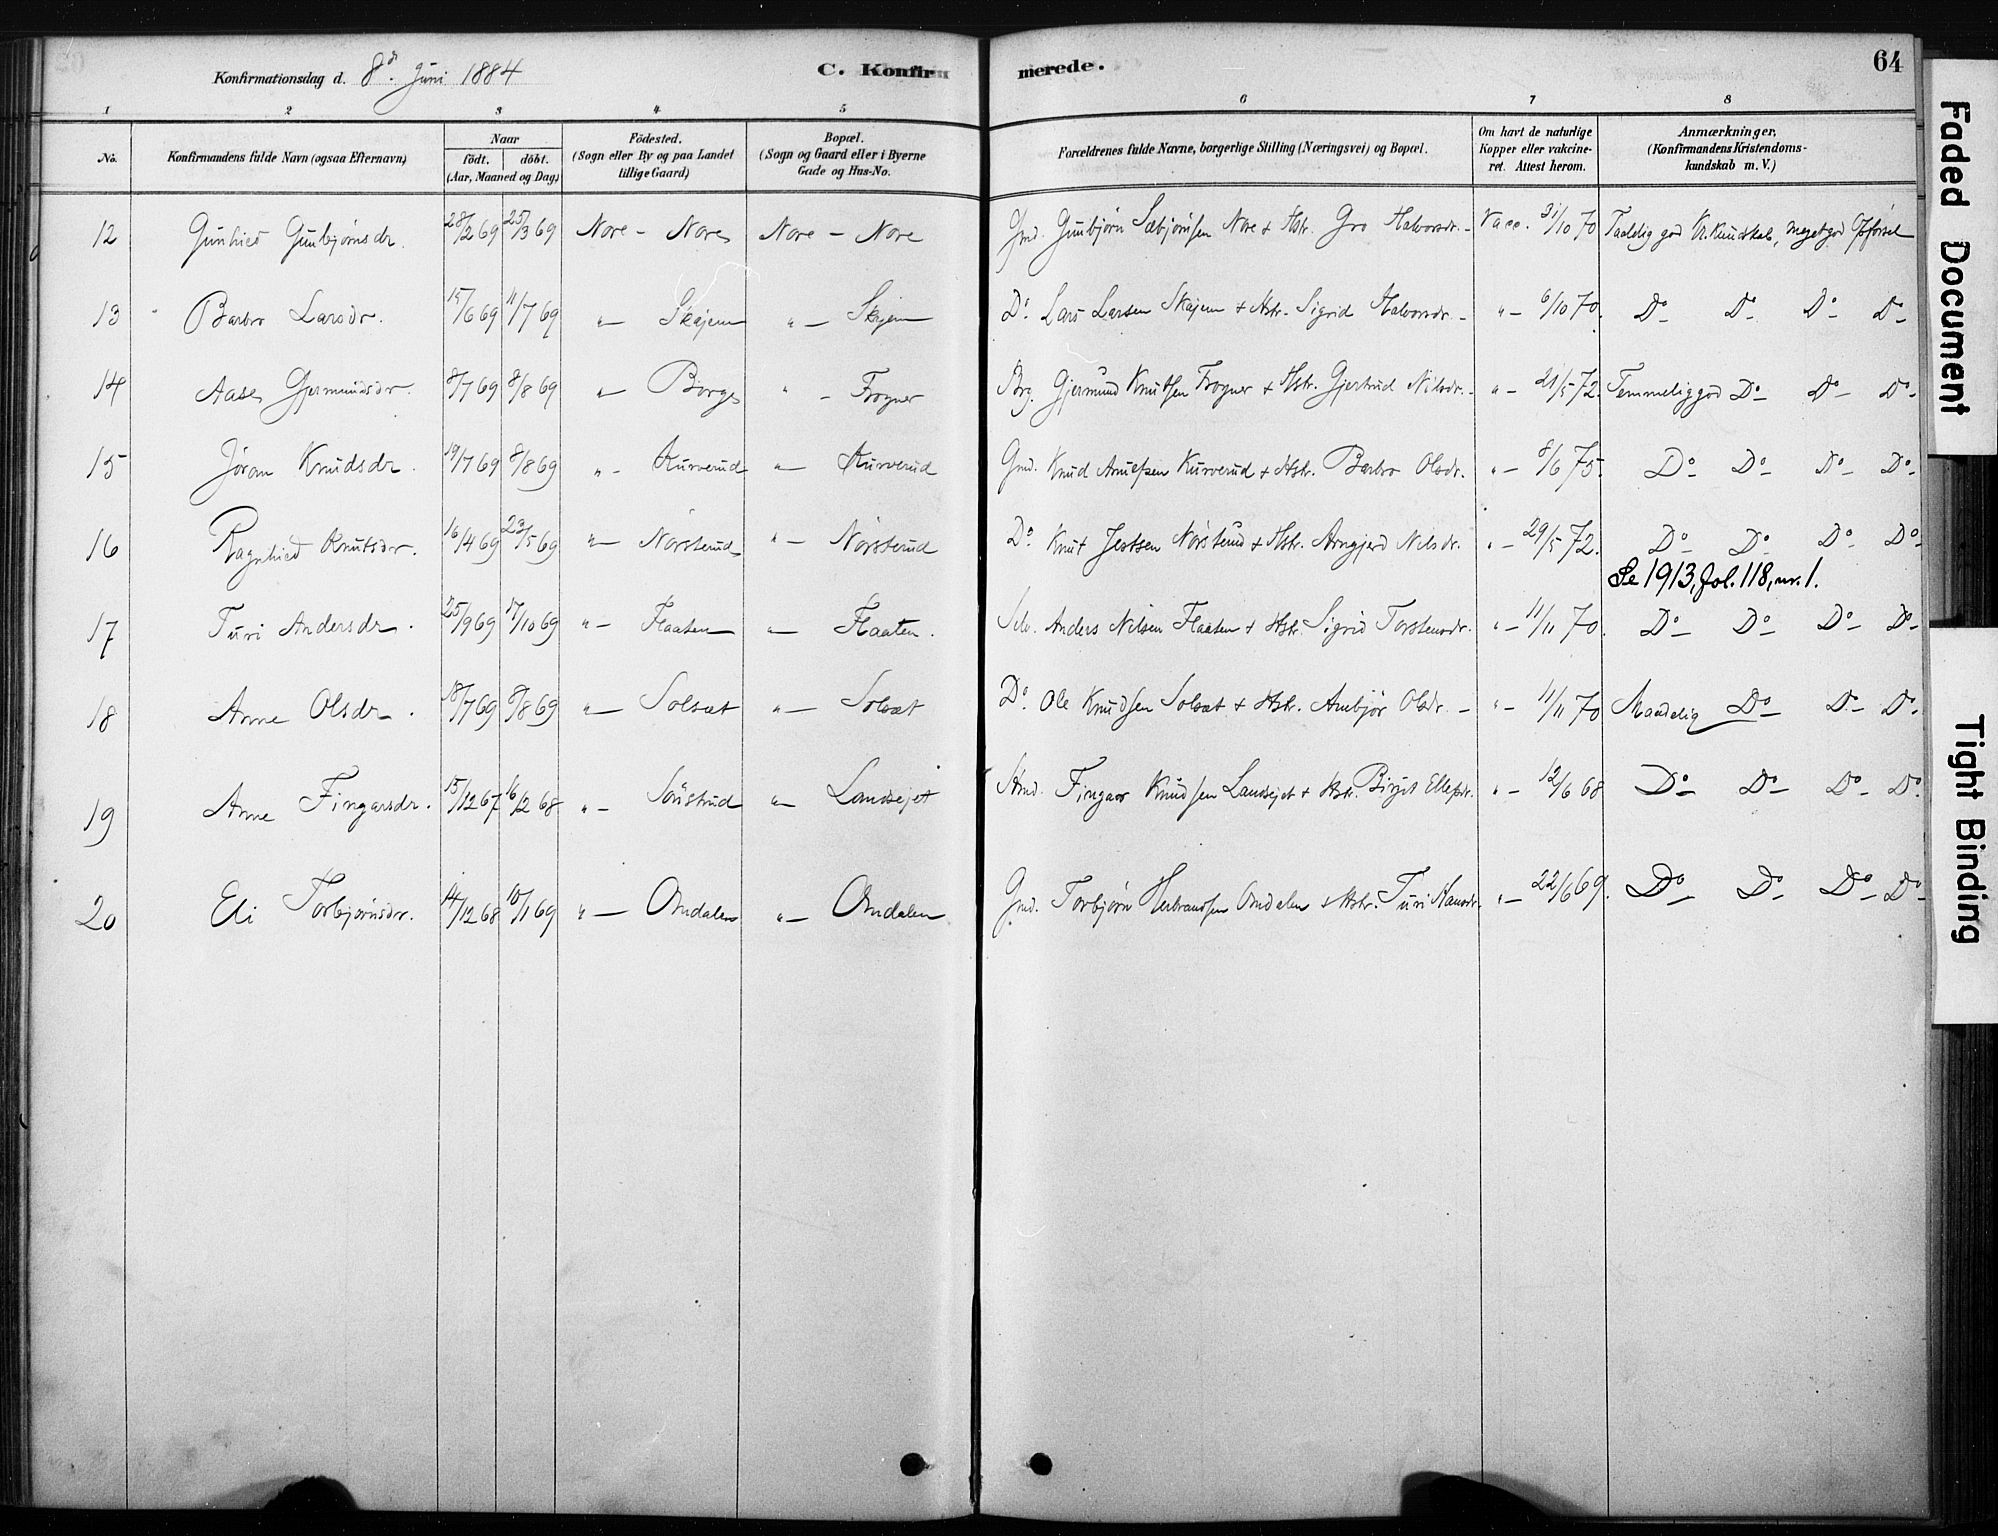 Konfirmationsdag d. 8de Juni 1884 C. Konfirmerede. 64
1 2 3 4 5 6 7 8
No. Konfirmandens fulde Navn (ogsaa Efternavn) Naar födt. döbt. (Aar, Maaned og Dag) Födested. (Sogn eller By og paa Landet tillige Gaard) Bopæl. (Sogn og Gaard eller i Byerne Gade og Hus-No. Forældrenes fulde Navne, borgerlige Stilling (Næringsvei) og Bopæl. Om havt de naturlige Kopper eller vakcineret. Attest herom. Anmærkninger, (Konfirmandens Kristendomskundskab m.V.)
12 Gunhild Gunbjørnsdr. 28/2 69 25/3 69 Nore - Nore Nore - Nore Gmd. Gunbjørn Sæbjørnsen Nore & Hstr. Gro Halvorsdr. - Vacc. 31/10 70 Taalelig god Kr.kundskab, meget god Opførsel
13 Barbro Larsdr. 15/6 69 11/7 69 " - Skajem " - Skajem Do. Lars Larsen Skajem & Hstr. Sigrid Halvorsdr. - " - 6/10 70. Do - Do - Do - Do -
14 Aase Gjermundsdr. 8/7 69 8/8 69 " - Borge " - Frogner Brg. Gjermund Knutsen Frogner & Hstr. Gjertrud Nilsdr. - " - 21/5 72. Temmelig god Do - Do - Do -
15 Jøran Knudsdr. 19/7 69 8/8 69 " - Kurverud " - Kurverud Gmd. Knud Knud Kurverud & Hstr. Barbro Olsdr. " - 8/6 75. Do - Do - Do - Do -
16 Ragnhild Knutsdr. 16/4 69 23/5 69 " - Nørsterud " - Nørsterud Do. Knut Nørsterud & Hstr. Arngjerd Nilsdr. " - 29/5 72. Do - Do - Do - Do -
Se 1913, fol. 118, nr. 1.
17 Turi Andersdr. 25/9 69 17/10 69 " - Flaaten " - Flaaten. Selv. Anders Nilsen Flaaten & Hstr. Sigrid Torstensdr. " - 11/11 70. Do - Do - Do - Do -
18 Anne Olsdr. 18/7 69 8/8 69 " - Solsæt " - Solsæt Do. Ole Knudsen Solsæt & Hstr. Olsdr. - " - 11/11 70 Maadelig Do - Do - Do -
19 Anne Fingarsdr. 15/12 67 16/2 68 " - " - Landsejet Fingar Knudsen Landsejet & Hstr. Birgit " - 12/6 68 Do - Do - Do - Do
20 Eli Torbjørnsdr. 14/12 68 10/1 69 " - Omdalen " - Omdalen Gmd. Torbjørn Herbrandsen Omdalen & Hstr. Turi " - 22/6 69. Do - Do - Do - Do -
Faded Document
Tight Binding